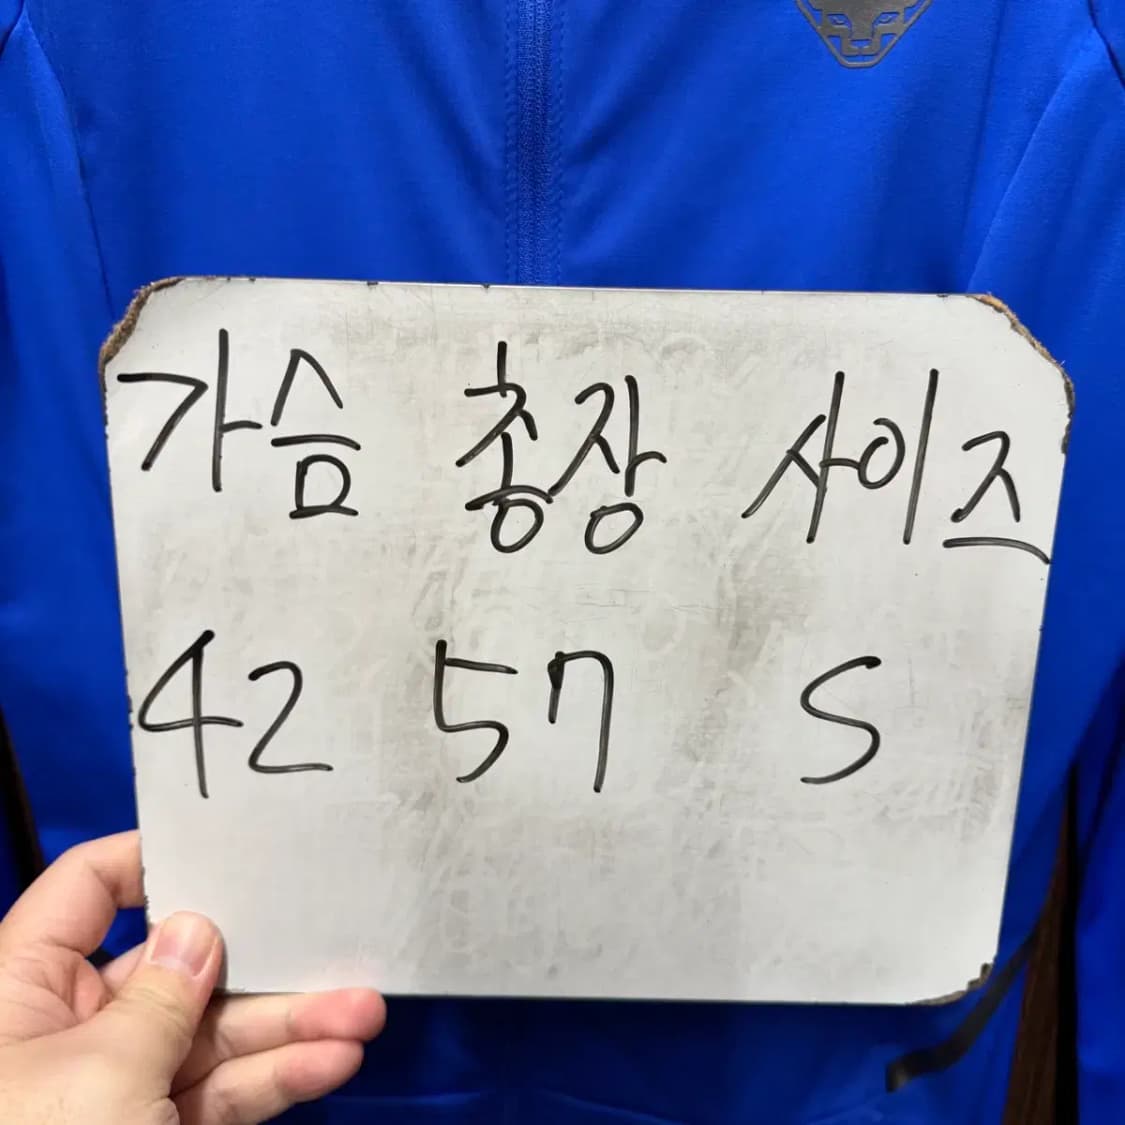 가슴 총장 사이즈
42 57 S